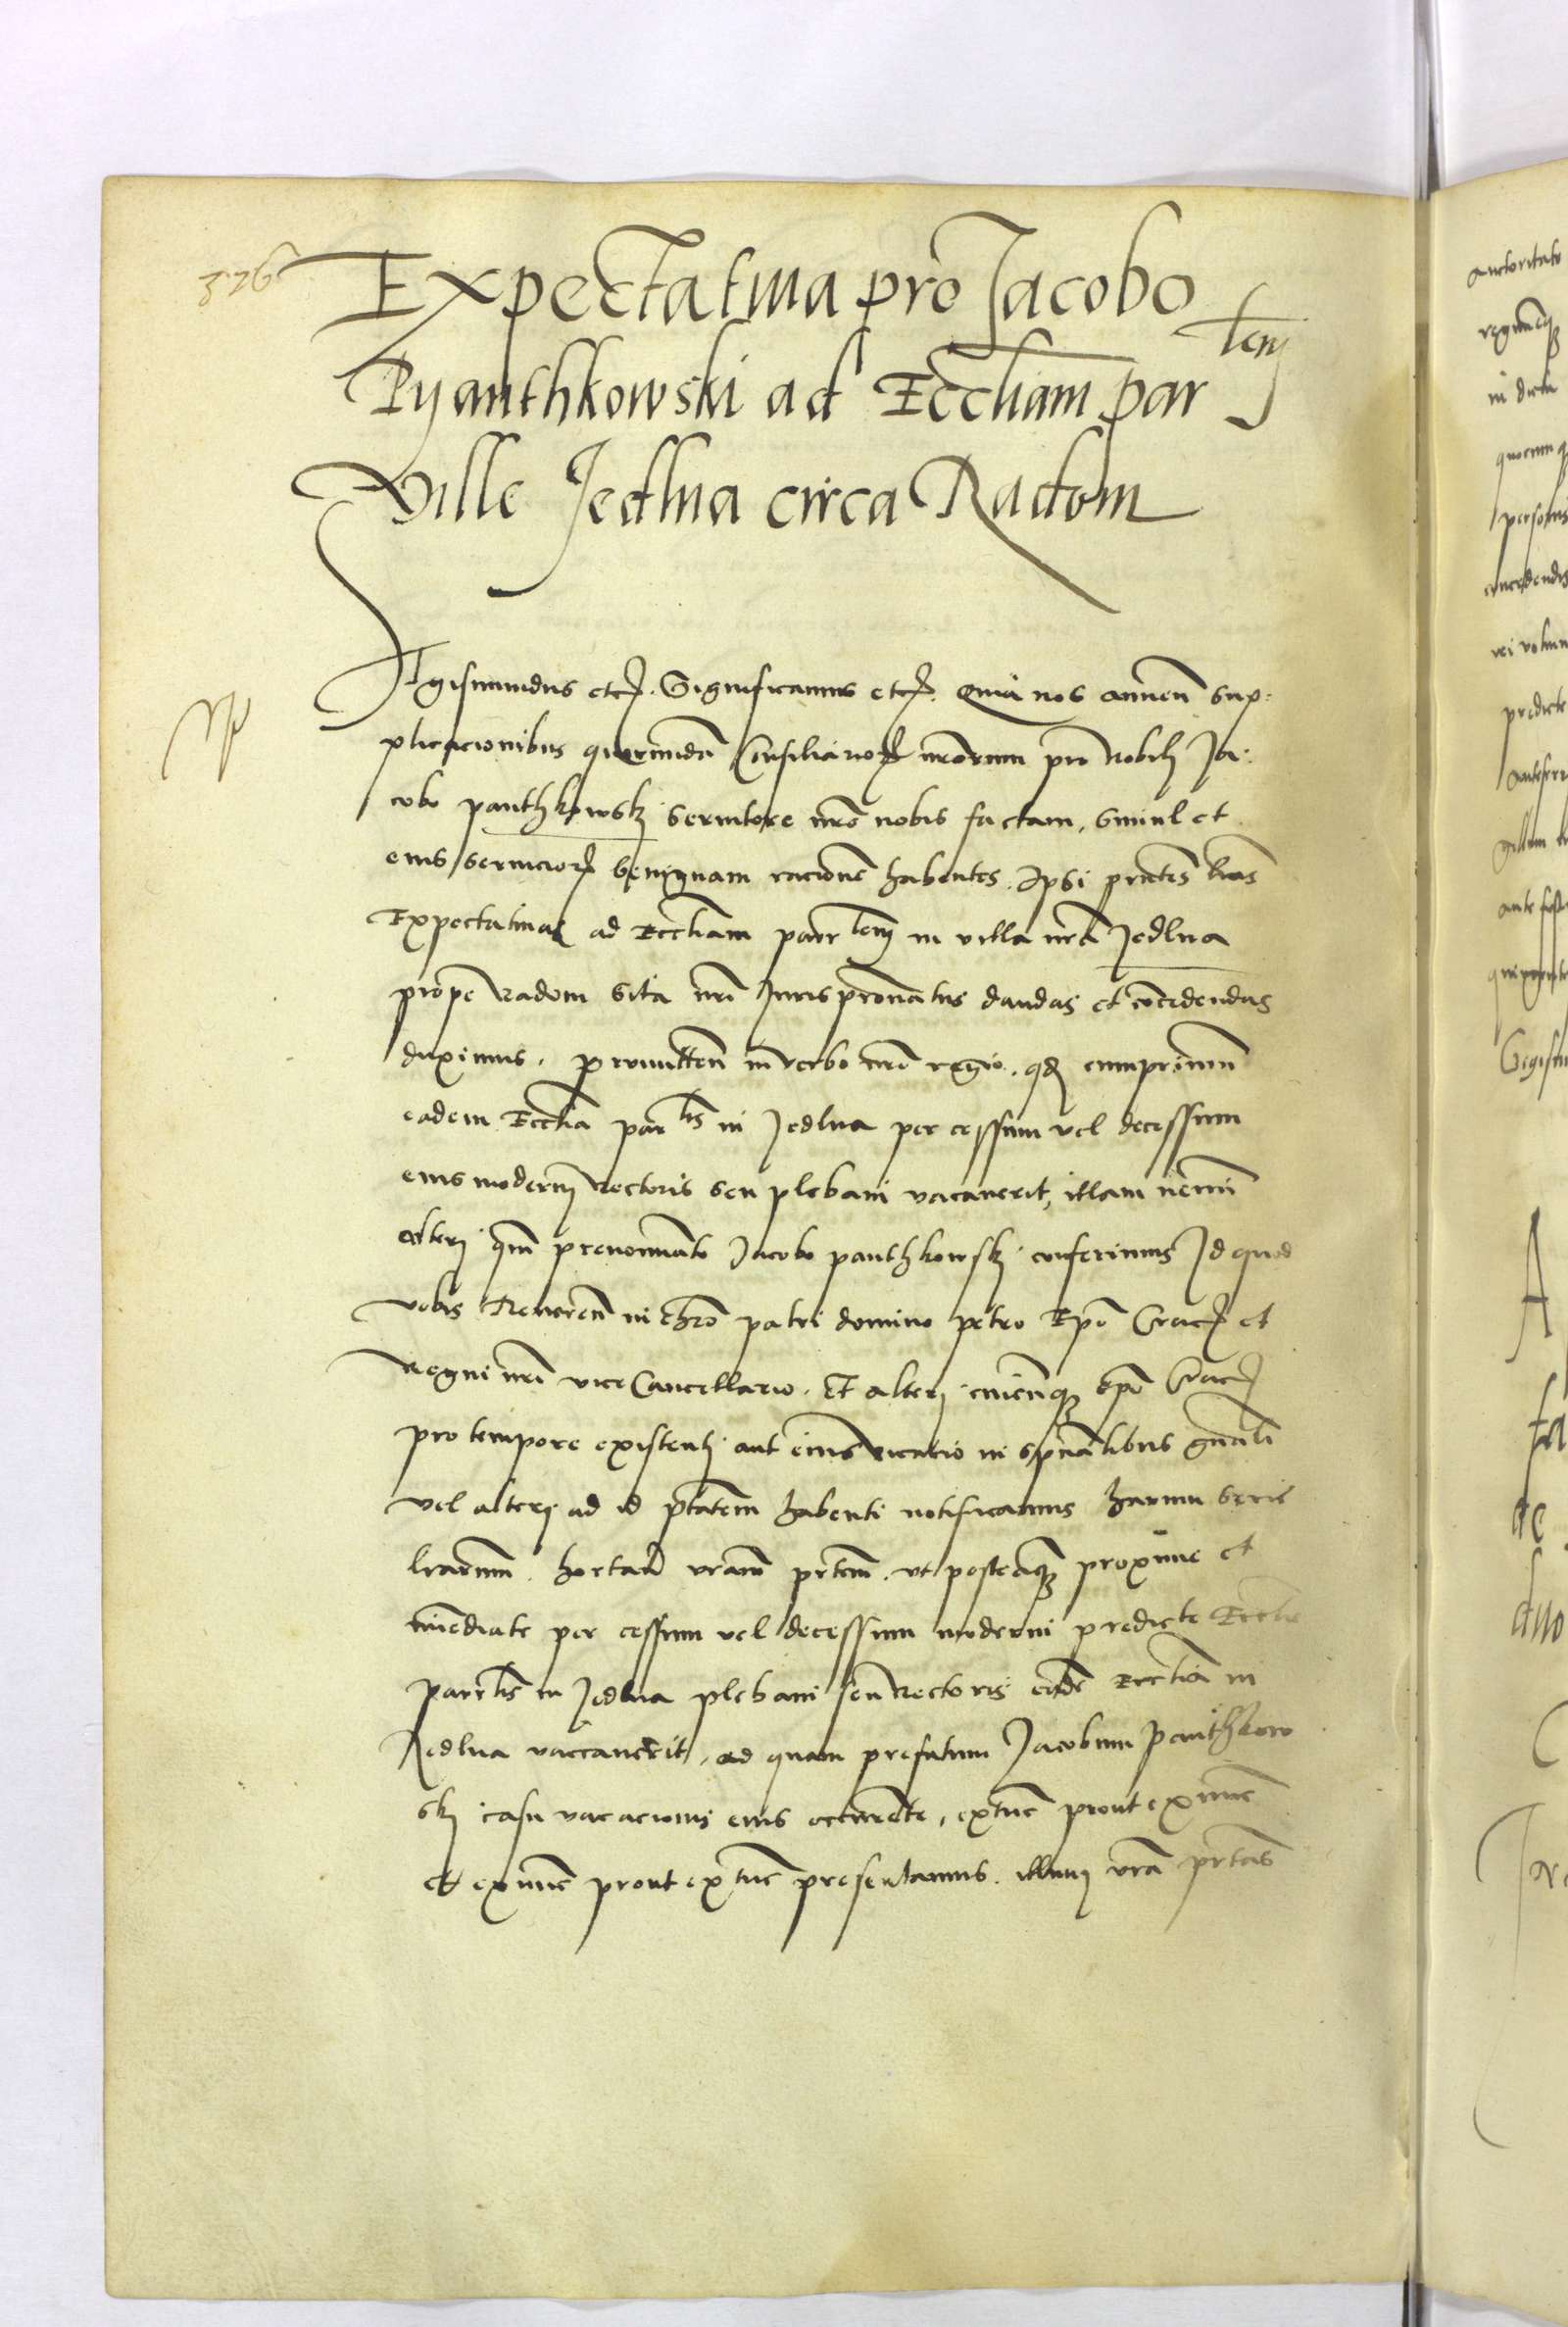 326
Expectatiua pro Jacobo
Pyanthkowski ad Eccliam par lem
Ville Jedlna circa Radom
Sigismundus etc. Significamus etc. Quia nos annuen sup:
plicacionibus quorundā Consiliariorz nrorum pro nobilj Ja:
cobo panthkowskj seruitore nrō nobis factam, simul et
eius seruiciorz benignam racionē habentes. Ipsi prntes lras
Expectatiuas ad Eccliam parr lem in villa nrā Jedlna
prope Radom sita nrī Jurispronatus dandas et cōcedendas
duximus. promitten in verbo nrō regio. qd cumprimum
eadem Ecclia par lis in Jedlna per cessum vel decessum
eius modernj Rectoris seu plebani vacauerit, illam nemini
alterj qm prenominato Jacobo panthkowskj conferimus Id quod
vobis Reueren in Chrō patri domino petro Epō Crac et
Regni nrī vice Cancellario. Et alterj cuicunqz Epō Crac
pro tempore existentj aut eius vicario in spūalibus gnali
vel alterj ad id ptatem habenti notificamus harum serie
lrarum. hortan vram prtem. vt posteaqz proxime et
imediate per cessum vel decessum moderni predicte Ecclie
parrlis in Jedlna plebani seu Rectoris eadē Ecclia in
Jedlna vaccauerit, ad quam prefatum Jacobum panthkow
skj casu vacacionis eius occurrente, extūc prout exnūc
et exnūc prout extūc presentamus. illum vrā prtas